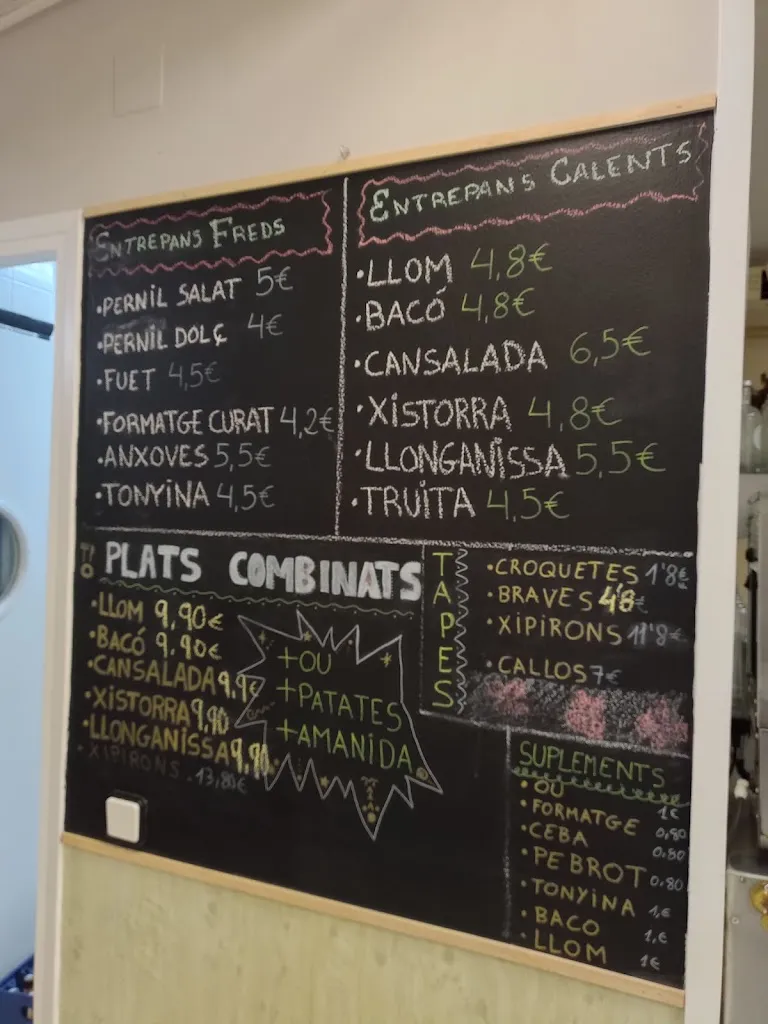 ENTREPANS FREDS
·PERNIL SALAT 5€
·PERNIL DOLÇ 4€
·FUET 4,5€
·FORMATGE CURAT 4,2€
·ANXOVES 5,5€
·TONYINA 4,5€
ENTREPANS CALENTS
·LLOM 4,8€
·BACÓ 4,8€
·CANSALADA 6,5€
·XISTORRA 4,8€
·LLONGANISSA 5,5€
·TRUITA 4,5€
PLATS COMBINATS
·LLOM 9,90€
·BACÓ 9.90€
·CANSALADA 9,9€
·XISTORRA 9,90
·LLONGANISSA 9,90
·XIPIRONS. 13,80€
+OU
+PATATES
+AMANIDA
TAPES
·CROQUETES 1'8€
·BRAVES 4'8€
·XIPIRONS 11'8€
·CALLOS 7€
SUPLEMENTS
·OU 1€
·FORMATGE 0,80
·CEBA 0,50
·PEBROT 0.80
·TONYINA 1,€
·BACO 1,€
·LLOM 1€